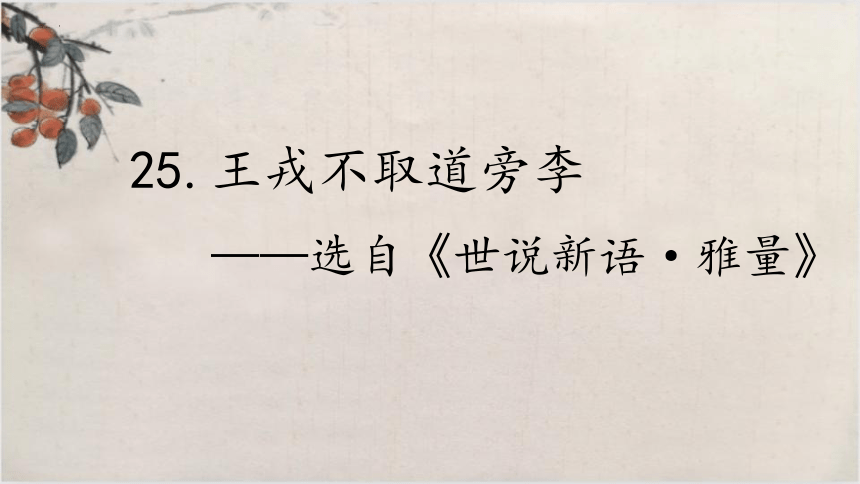 25.王戎不取道旁李
——选自《世说新语·雅量》